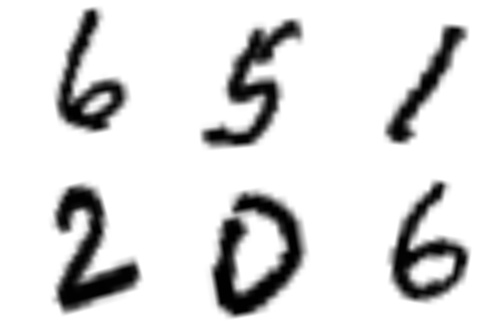 6 5 1
2 0 6